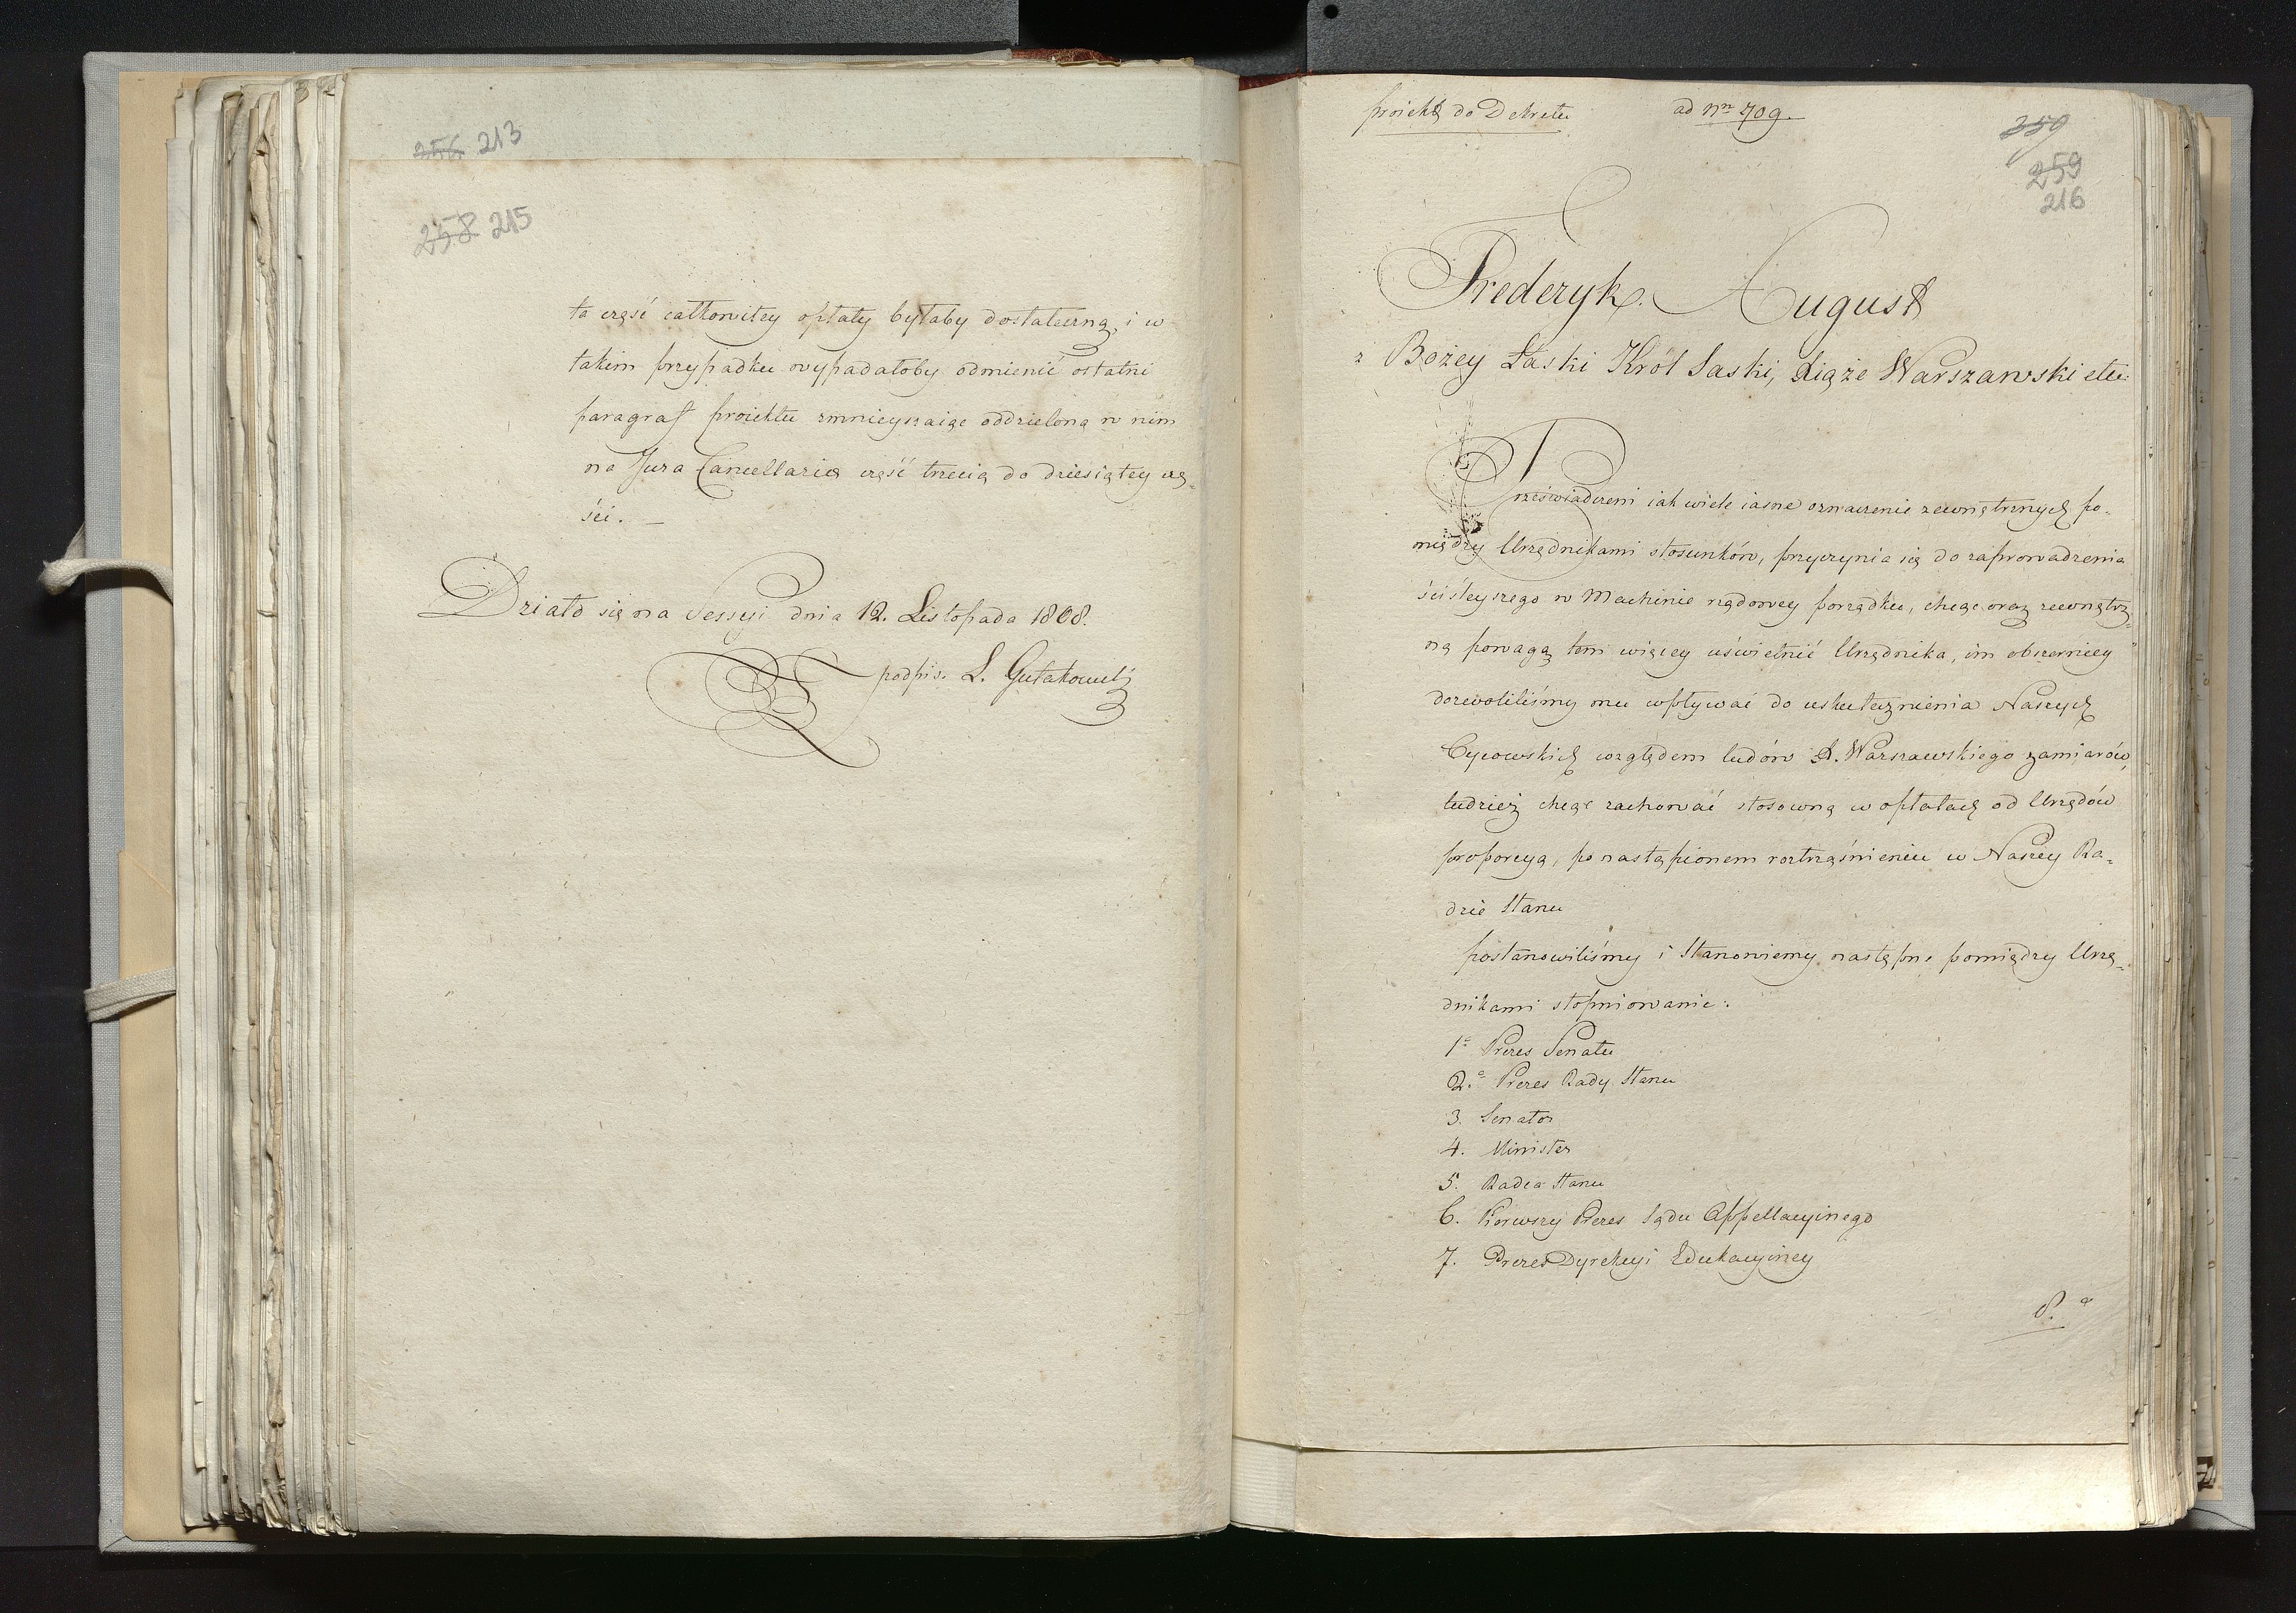 256 213
258 215
ta część całkowitey opłaty byłaby dostateczną, i w
takim przypadku wypadałoby odmienić ostatni
paragraf proiektu zmnieyszaiąc oddzieloną w nim
na Jura Cancellariæ część trzecią do dziesiątey czę-
ści. —
Działo się na Sessyi dnia 12. Listopada 1808.
podpis. L. Gutakowski
proiekt do Dekretu ad Nrm 709.
259
259
216
Frederyk August
z Bożey Łaski Król Saski, Xiąże Warszawski etc:
Przeświadczeni iak wiele iasne oznaczenie zewnętrznych po-
między Urzędnikami stosunków, przyczynia się do zaprowadzenia
ściśleyszego w Machinie rządowey porządku, chcąc oraz zewnętrz-
ną powagą tem więcey uświetnić Urzędnika, im obszerniey
dozwoliliśmy mu wpływać do uskutecznienia Naszych
Oycowskich względem ludów X. Warszawskiego zamiarów,
tudzież chcąc zachować stosowną w opłatach od Urzędów
proporcyą, po nastąpionem roztrząśnieniu w Naszey Ra-
dzie Stanu
postanowiliśmy i Stanowiemy następne pomiędzy Urzę-
dnikami stopniowanie:
1e Prezes Senatu
2.e Prezes Rady Stanu
3. Senator
4. Minister
5. Radca Stanu
6. Pierwszy Prezes Sądu Appellacyinego
7. Prezes Dyrekcyi Edukacyiney
8.